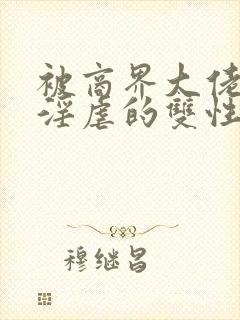 被商界大佬
淫虐的雙性
穆继昌